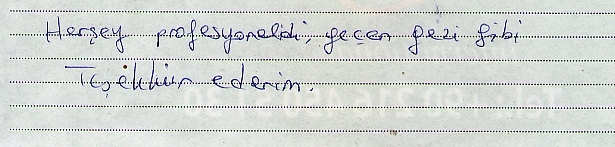 Herşey profesyoneldi, geçen gezi gibi
Teşekkür ederim.